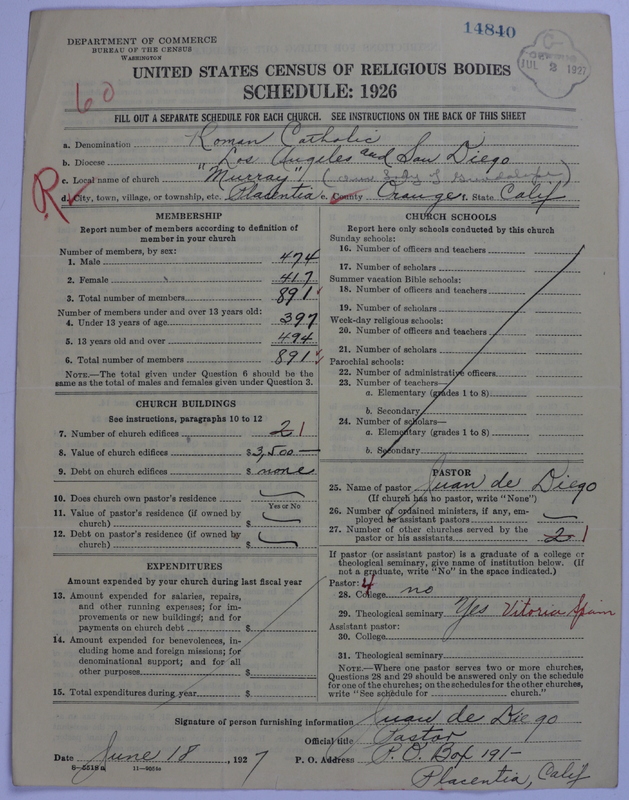 14840
DEPARTMENT OF COMMERCE
BUREAU OF THE CENSUS
WASHINGTON
JUL 2 1927
60
UNITED STATES CENSUS OF RELIGIOUS BODIES
SCHEDULE: 1926
FILL OUT A SEPARATE SCHEDULE FOR EACH CHURCH. SEE INSTRUCTIONS ON THE BACK OF THIS SHEET
a. Denomination Roman Catholic
b. Diocese Los Angeles and San Diego
c. Local name of church "Murray" (Our Lady of Guadalupe)
R d. City, town, village, or township, etc. Placentia e. County Orange f. State Calif
MEMBERSHIP
Report number of members according to definition of
member in your church
Number of members, by sex:
1. Male 474
2. Female 417
3. Total number of members 891
Number of members under and over 13 years old:
4. Under 13 years of age 397
5. 13 years old and over 494
6. Total number of members 891
NOTE.—The total given under Question 6 should be the
same as the total of males and females given under Question 3.
CHURCH BUILDINGS
See instructions, paragraphs 10 to 12
7. Number of church edifices 2 1
8. Value of church edifices $3,500—
9. Debt on church edifices $ none
10. Does church own pastor's residence
Yes or No
11. Value of pastor's residence (if owned by
church) $
12. Debt on pastor's residence (if owned by
church) $
EXPENDITURES
Amount expended by your church during last fiscal year
13. Amount expended for salaries, repairs,
and other running expenses; for im-
provements or new buildings; and for
payments on church debt $
14. Amount expended for benevolences, in-
cluding home and foreign missions; for
denominational support; and for all
other purposes $
15. Total expenditures during year $
CHURCH SCHOOLS
Report here only schools conducted by this church
Sunday schools:
16. Number of officers and teachers
17. Number of scholars
Summer vacation Bible schools:
18. Number of officers and teachers
19. Number of scholars
Week-day religious schools:
20. Number of officers and teachers
21. Number of scholars
Parochial schools:
22. Number of administrative officers
23. Number of teachers—
a. Elementary (grades 1 to 8)
b. Secondary
24. Number of scholars—
a. Elementary (grades 1 to 8)
b. Secondary
PASTOR
25. Name of pastor Juan de Diego
(If church has no pastor, write "None")
26. Number of ordained ministers, if any, em-
ployed as assistant pastors
27. Number of other churches served by the
pastor or his assistants 2 1
If pastor (or assistant pastor) is a graduate of a college or
theological seminary, give name of institution below. (If
not a graduate, write "No" in the space indicated.)
Pastor: 4
28. College no
29. Theological seminary Yes Vitoria Spain
Assistant pastor:
30. College
31. Theological seminary
NOTE.—Where one pastor serves two or more churches,
Questions 28 and 29 should be answered only on the schedule
for one of the churches; on the schedules for the other churches,
write "See schedule for church."
Signature of person furnishing information Juan de Diego
Official title Pastor
Date June 18, 1927 P. O. Address P.O. Box 191—
Placentia, Calif